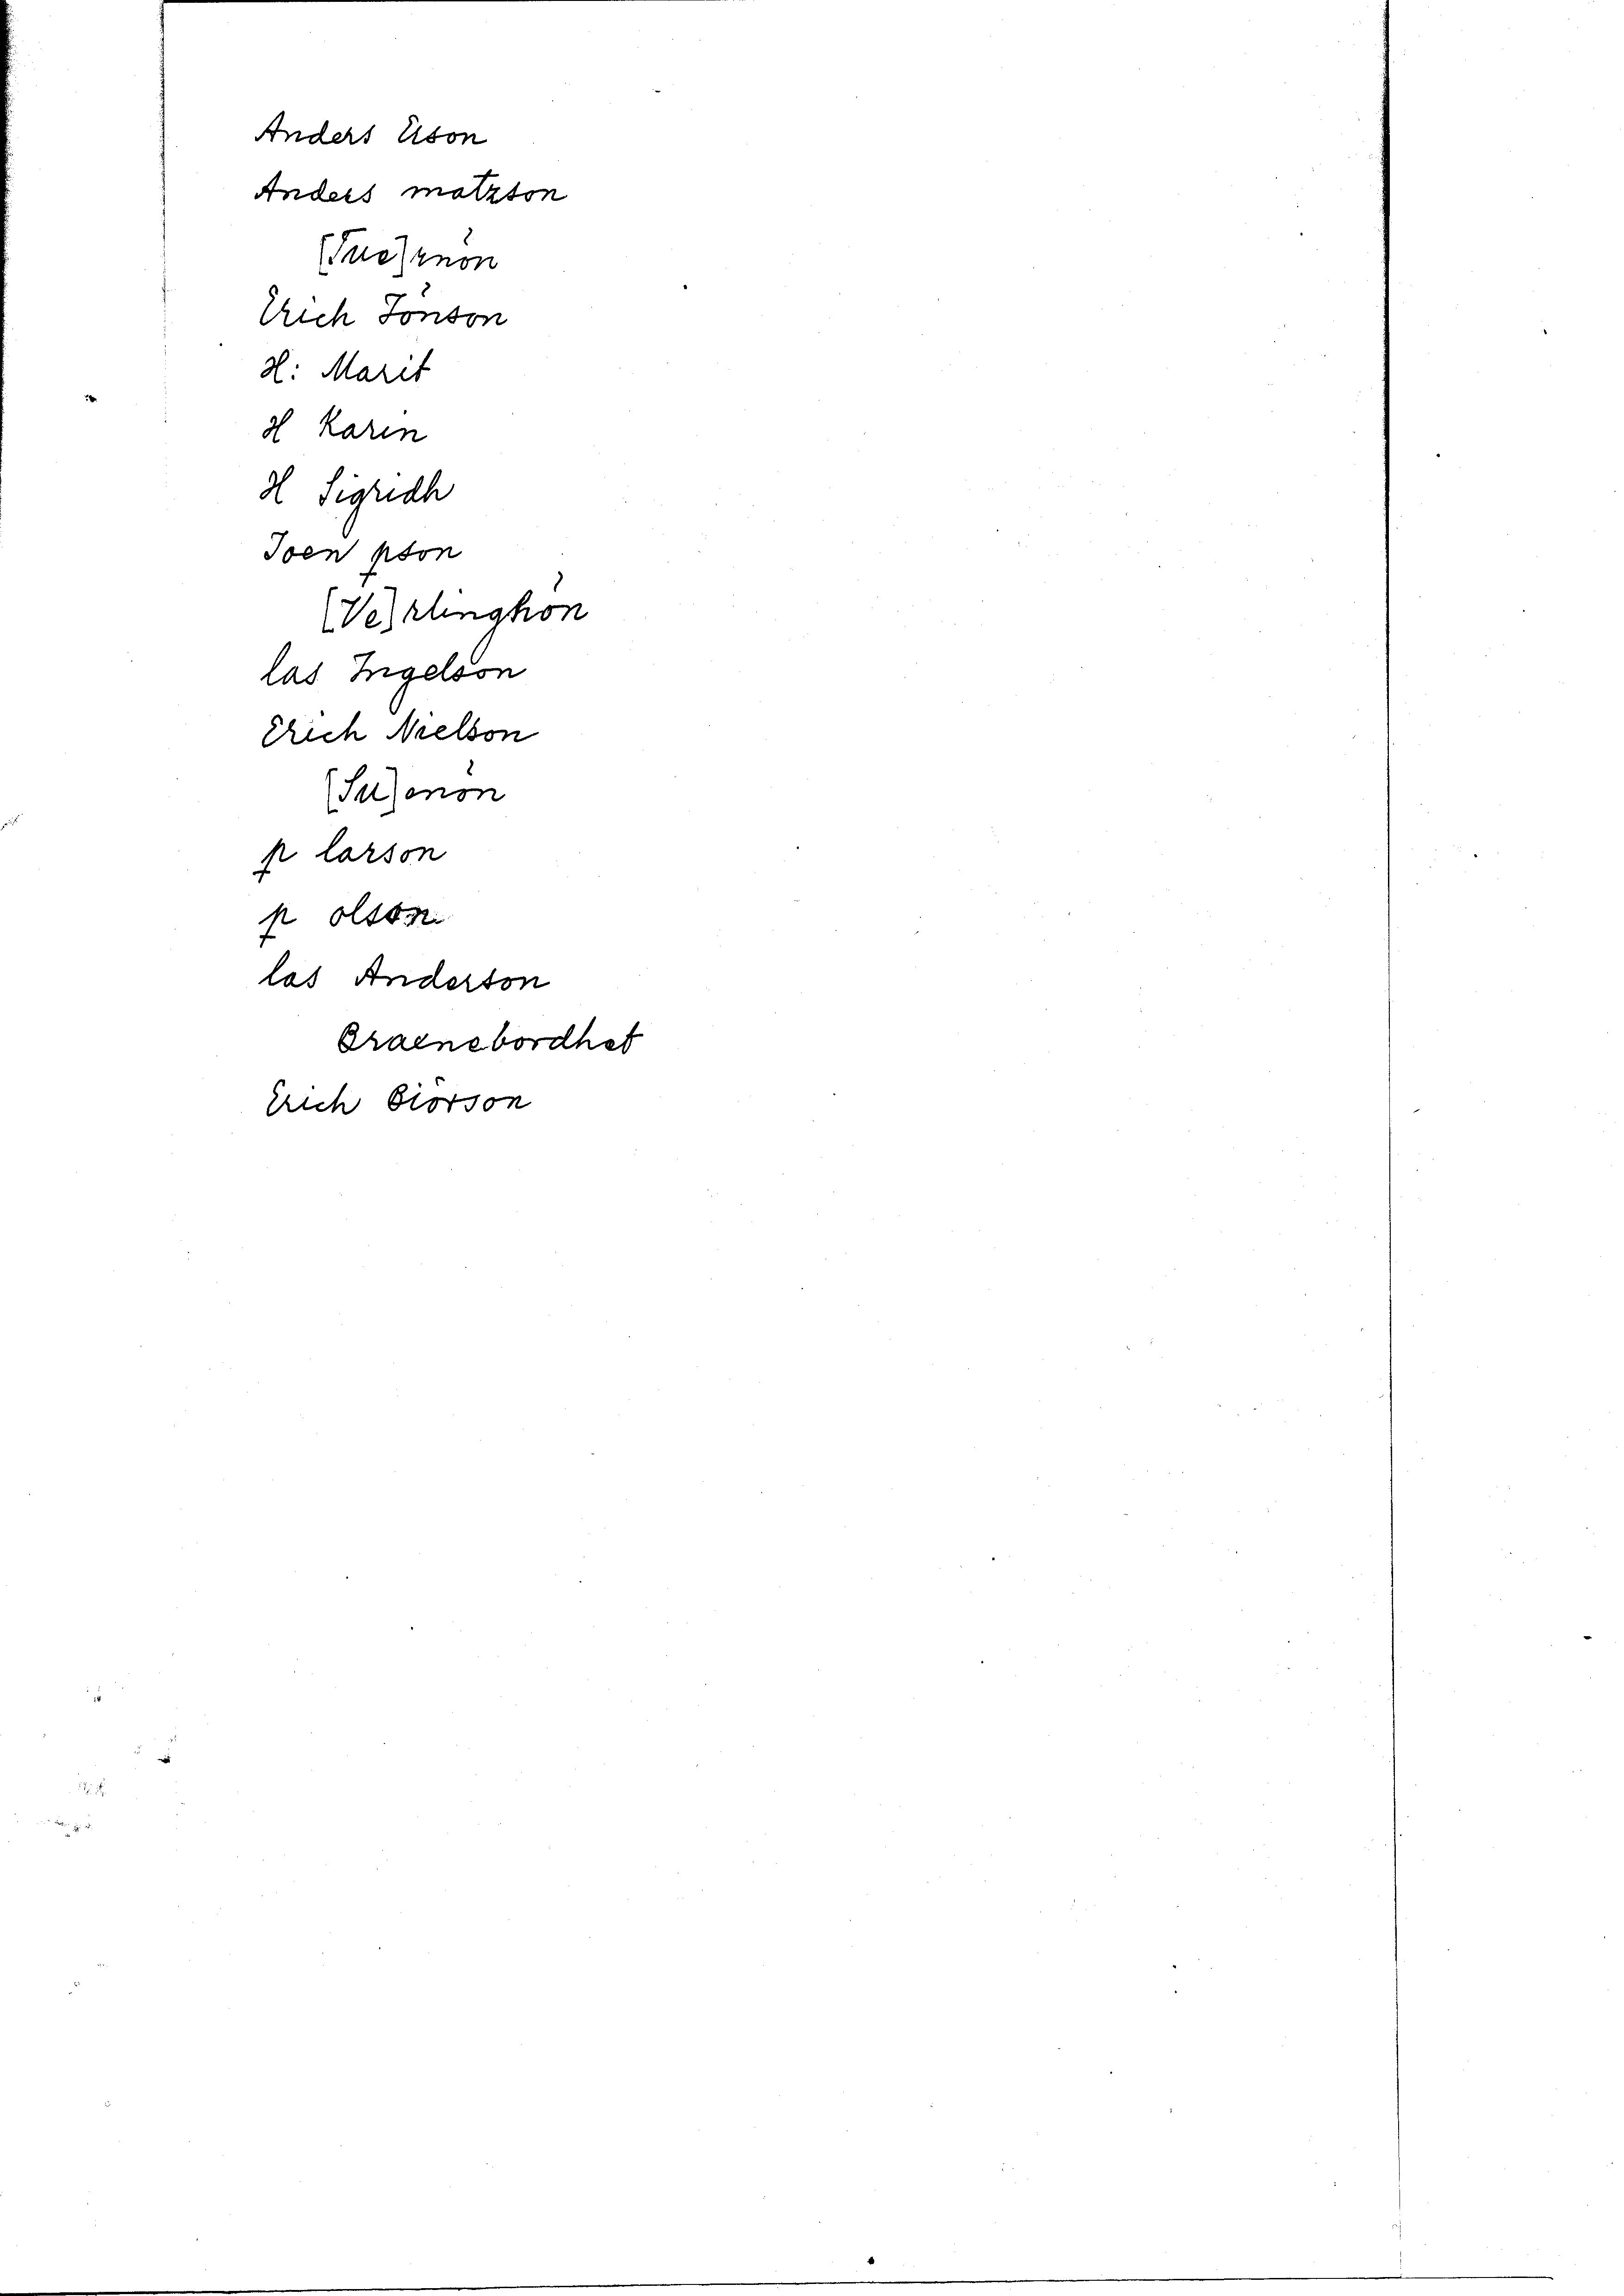 Anders Eson
Anders matzson
[Tue]rnön
Erich Jönson
H: Marit
H Karin
H Sigridh
Joen pson
[Ve]rlinghön
las Ingelson
Erich Nielson
[Su]enön
p larson
p olson
las Anderson
Braenebordhet
Erich Biörson